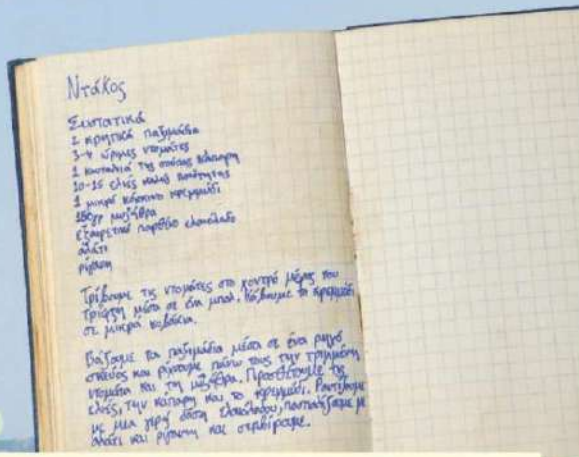 Ντάκος
Συστατικά
2 κρητικά παξιμάδια
3-4 ώριμες ντομάτες
1 κουταλιά της σούπας κάππαρη
10-15 ελιές καλής ποιότητας
1 μικρό κόκκινο κρεμμύδι
180γρ μυζήθρα
εξαιρετικό παρθένο ελαιόλαδο
αλάτι
ρίγανη
Τρίβουμε τις ντομάτες στο χοντρό μέρος του
τρίφτη μέσα σε ένα μπολ. Κόβουμε το κρεμμύδι
σε μικρά κυβάκια.
Βάζουμε τα παξιμάδια μέσα σε ένα ρηχό
σκεύος και ρίχνουμε πάνω τους την τριμμένη
ντομάτα και τη μυζήθρα. Προσθέτουμε τις
ελιές, την κάπαρη και το κρεμμύδι. Ραντίζουμε
με μια γερή δόση ελαιολάδου, πασπαλίζουμε με
αλάτι και ρίγανη και σερβίρουμε.